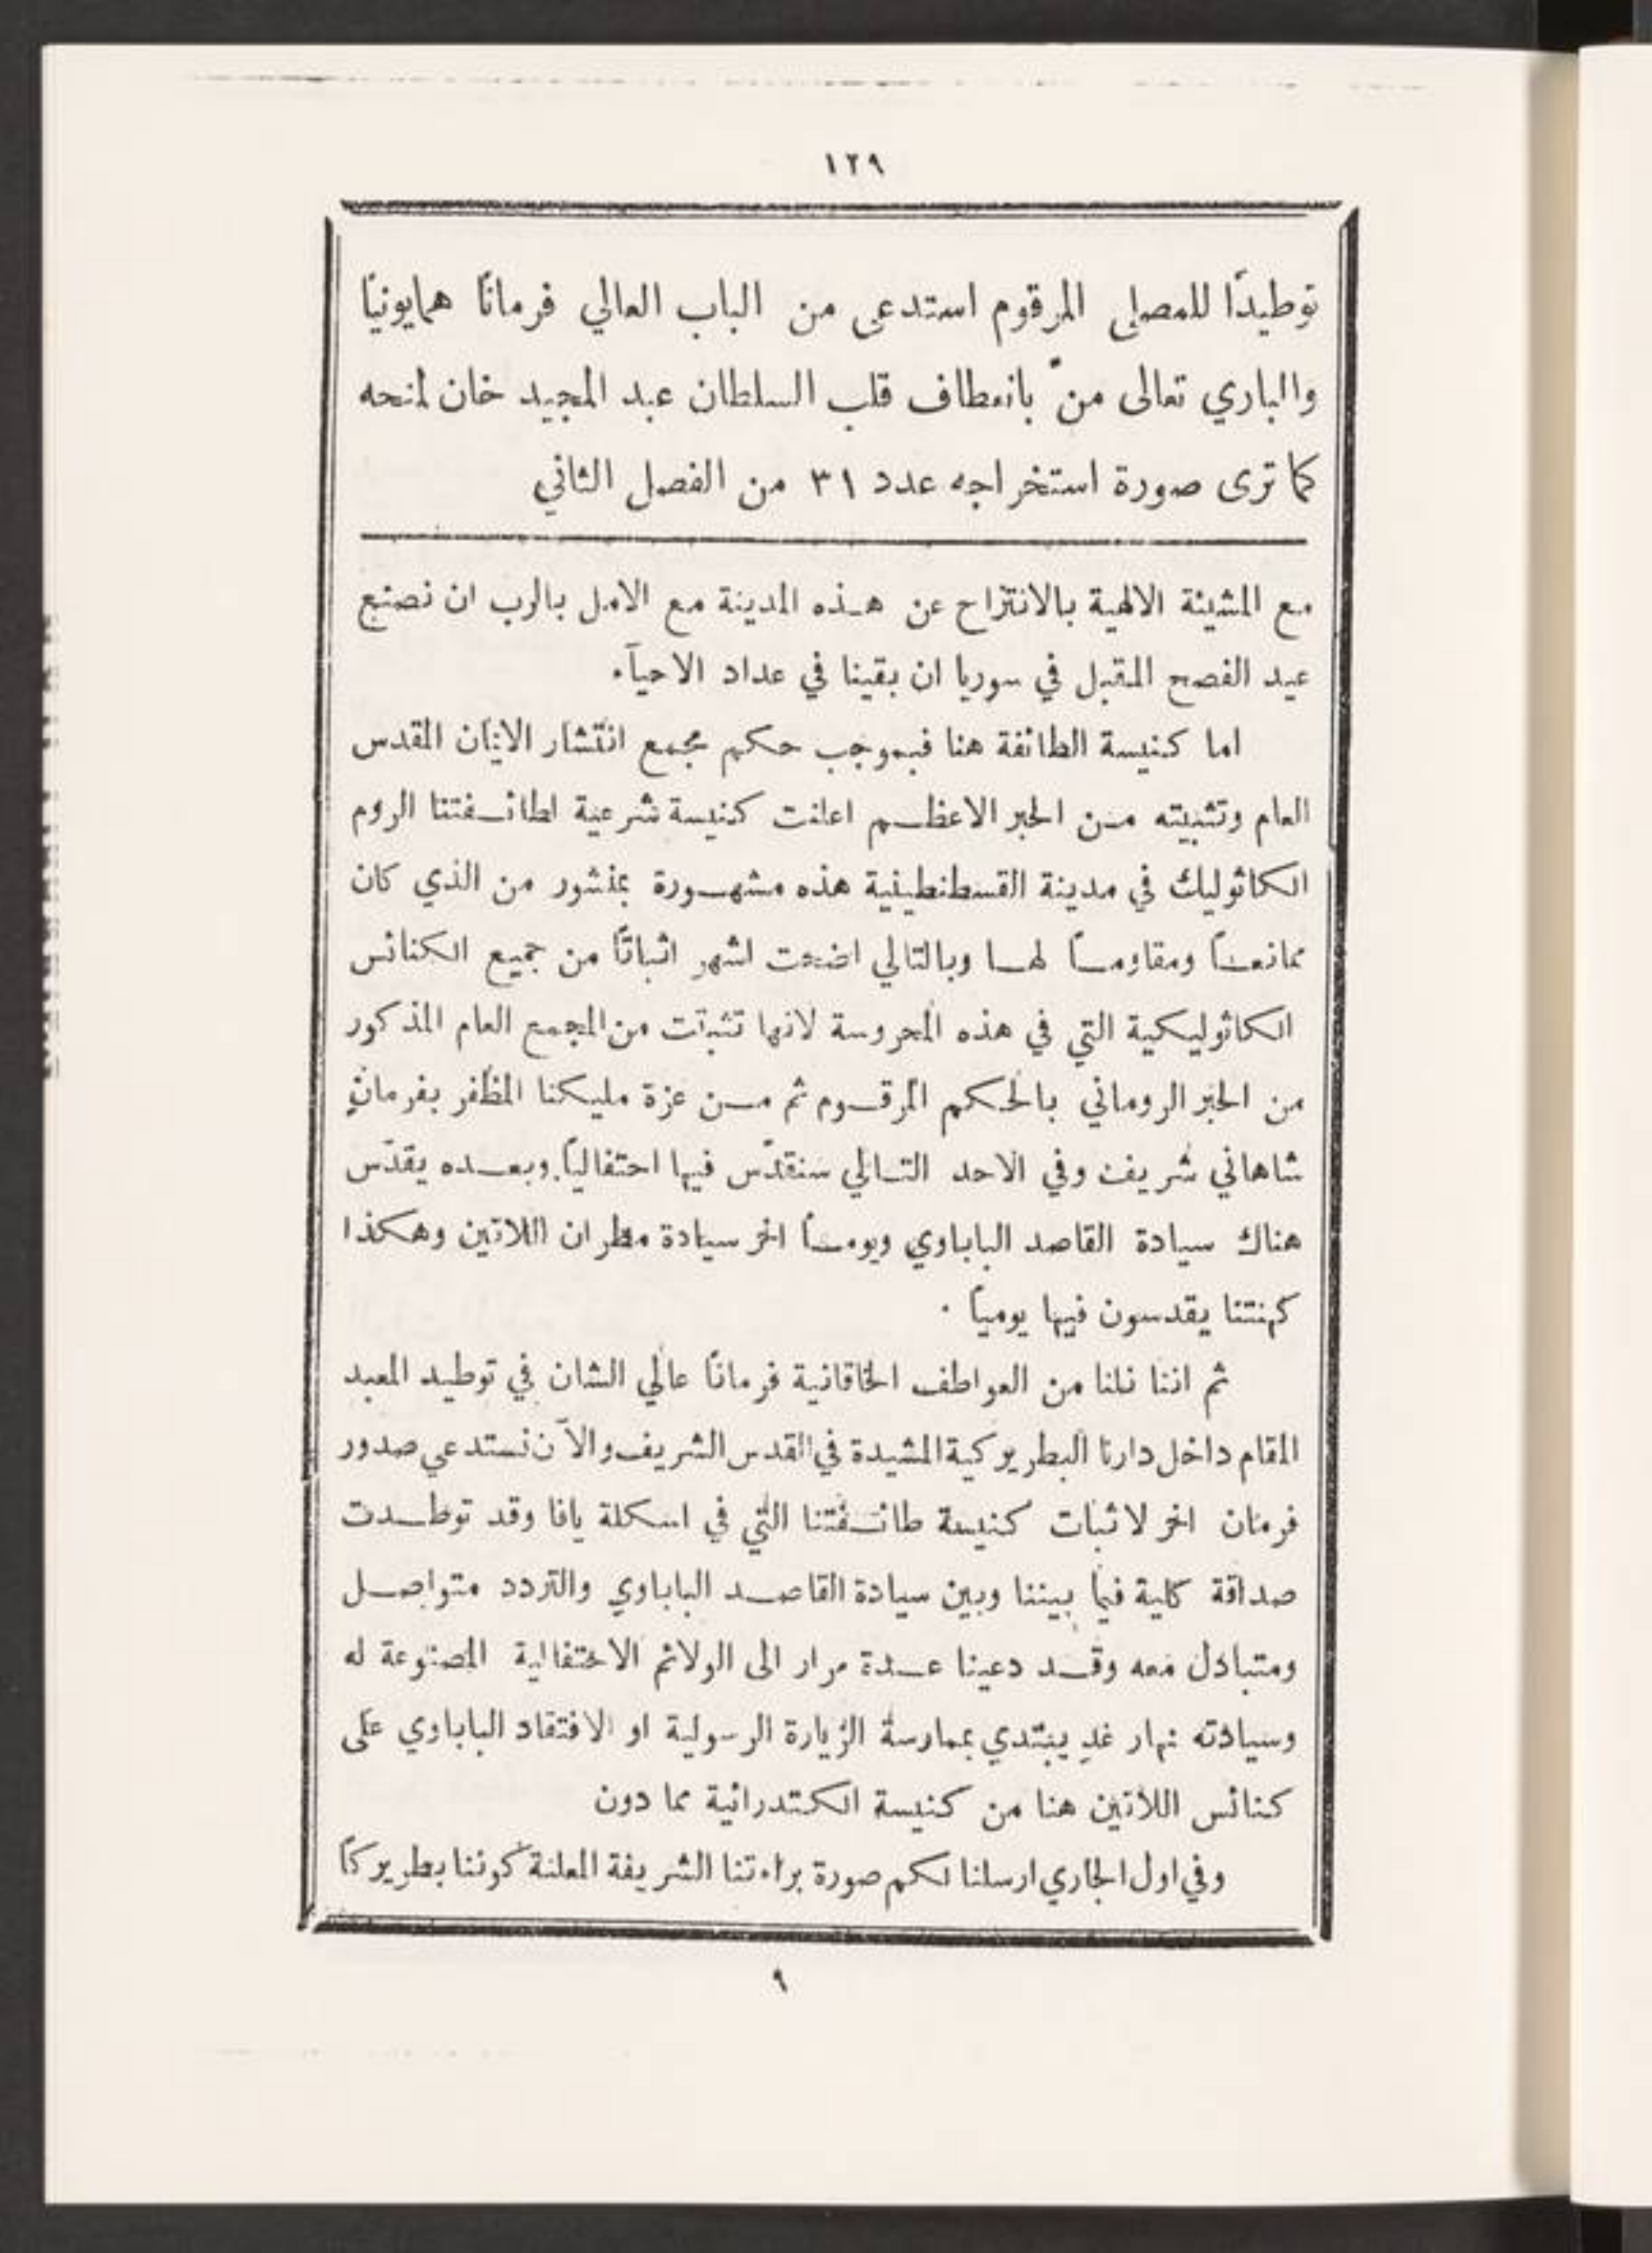 ١٢٩
توطيدًا للمصلى المرقوم استدعى من الباب العالي فرمانًا همايونيًا
والباري تعالى منّ بانعطاف قلب السلطان عبد المجيد خان لمنحه
كما ترى صورة استخراجه عدد ٣١ من الفصل الثاني
مع المشيئة الالهية بالانتزاح عن هذه المدينة مع الامل بالرب ان نصنع
عيد الفصح المقبل في سوريا ان بقينا في عداد الاحيآء
اما كنيسة الطائفة هنا فبموجب حكم مجمع انتشار الايمان المقدس
العام وتثبيته من الحبر الاعظم اعلنت كنيسة شرعية لطائفتنا الروم
الكاثوليك في مدينة القسطنطينية هذه مشهورة بمنشور من الذي كان
ممانعاً ومقاوماً لها وبالتالي اضحت اشهر اثباتًا من جميع الكنائس
الكاثوليكية التي في هذه المحروسة لانها تثبتت من المجمع العام المذكور
من الحبر الروماني بالحكم المرقوم ثم من عزة مليكنا المظفر بفرمانٍ
شاهاني شريف وفي الاحد التالي سنقدّس فيها احتفالياً وبعده يقدّس
هناك سيادة القاصد الباباوي ويوماً اخر سيادة مطران اللاتين وهكذا
كهنتنا يقدسون فيها يومياً .
ثم اننا نلنا من العواطف الخاقانية فرمانًا عالي الشان في توطيد المعبد
المقام داخل دارنا البطريركية المشيدة في القدس الشريف والآن نستدعي صدور
فرمان اخر لاثبات كنيسة طائفتنا التي في اسكلة يافا وقد توطدت
صداقة كلية فيما بيننا وبين سيادة القاصد الباباوي والتردد متواصل
ومتبادل معه وقد دعينا عدة مرار الى الولائم الاحتفالية المصنوعة له
وسيادته نهار غدٍ يبتدي بممارسة الزيارة الرسولية او الافتقاد الباباوي على
كنائس اللاتين هنا من كنيسة الكتدرائية مما دون
وفي اول الجاري ارسلنا لكم صورة براءتنا الشريفة المعلنة كوننا بطريركاً
٩